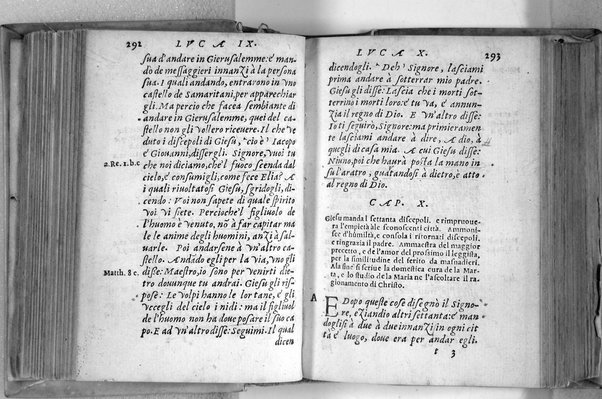 292 LVCA IX.
sua d'andare in Gierusalemme: e' man
dò de messaggieri innanzi à la persona
sua. I quali andando, entrarono in vno
castello de Samaritani, per apparechiar
gli. Ma percio che facea sembiante di
andare in Gierusalemme, quei del ca-
stello non gli vollero riceuere. Il che ve
duto i discepoli di Giesu, cio è Iacopo
2. Re. 1. b. c
e Giouanni, dissergli. Signore, vuoi tu
che noi diciamo, che'l fuoco scenda dal
cielo, e consumigli, come fece Elia? A
i quali riuoltatosi Giesu, sgridogli, di-
cendo: Voi non sapete di quale spirito
voi vi siete. Percioche'l figliuolo de
l'huomo è venuto, nō à far capitar ma
le le anime degli huomini, anzi à sal-
uarle. Poi andarsene à vn'altro ca-
stello. Andādo egli per la via, vno gli
Matth. 8 c.
disse: Maestro, io sono per venirti die-
tro dovunque tu andrai. Giesu gli ris-
pose: Le volpi hanno le lor tane, e gli
vccegli del cielo i nidi: ma il figliuol
de l'huomo non ha doue posare il suo ca
po. E ad vn'altro disse: Seguimi. Il qual
dicen
LVCA X. 293
dicendogli. Deh Signore, lasciami
prima andare à sotterrar mio padre.
Giesu gli disse: Lascia che i morti sot-
terrino i morti loro: e tu va, e annun-
zia il regno di Dio. E vn'altro disse:
Io ti seguirò, Signore: ma primieramen
te lasciami andare à dire, A dio, à
quegli di casa mia. A cui Giesu disse:
Niuno, poi che haurà posta la mano in
su l'aratro, guatandosi à dietro, è atto
al regno di Dio.
CAP. X.
Giesu manda I settanta discepoli. e rimprouer-
ra l'empietà à le sconoscenti città. Ammoni-
sce d'humiltà, e consola i ritornati discepoli.
e ringrazia il padre. Ammaestra del maggior
precetto, e de l'amor del prossimo il leggista,
per la similitudine del ferito da masnadieri.
Ala fine si riferisce la domestica cura de la Mar-
ta, e lo studio de la Maria ne l'ascoltare il ra-
gionamento di Christo.
A
E Dopo queste cose disegnò il Signo-
re, eziandio altri settanta: e man-
dogli sì à due à due innanzi in ogni cit
tà e luogo, doue era per andar egli.
t 3